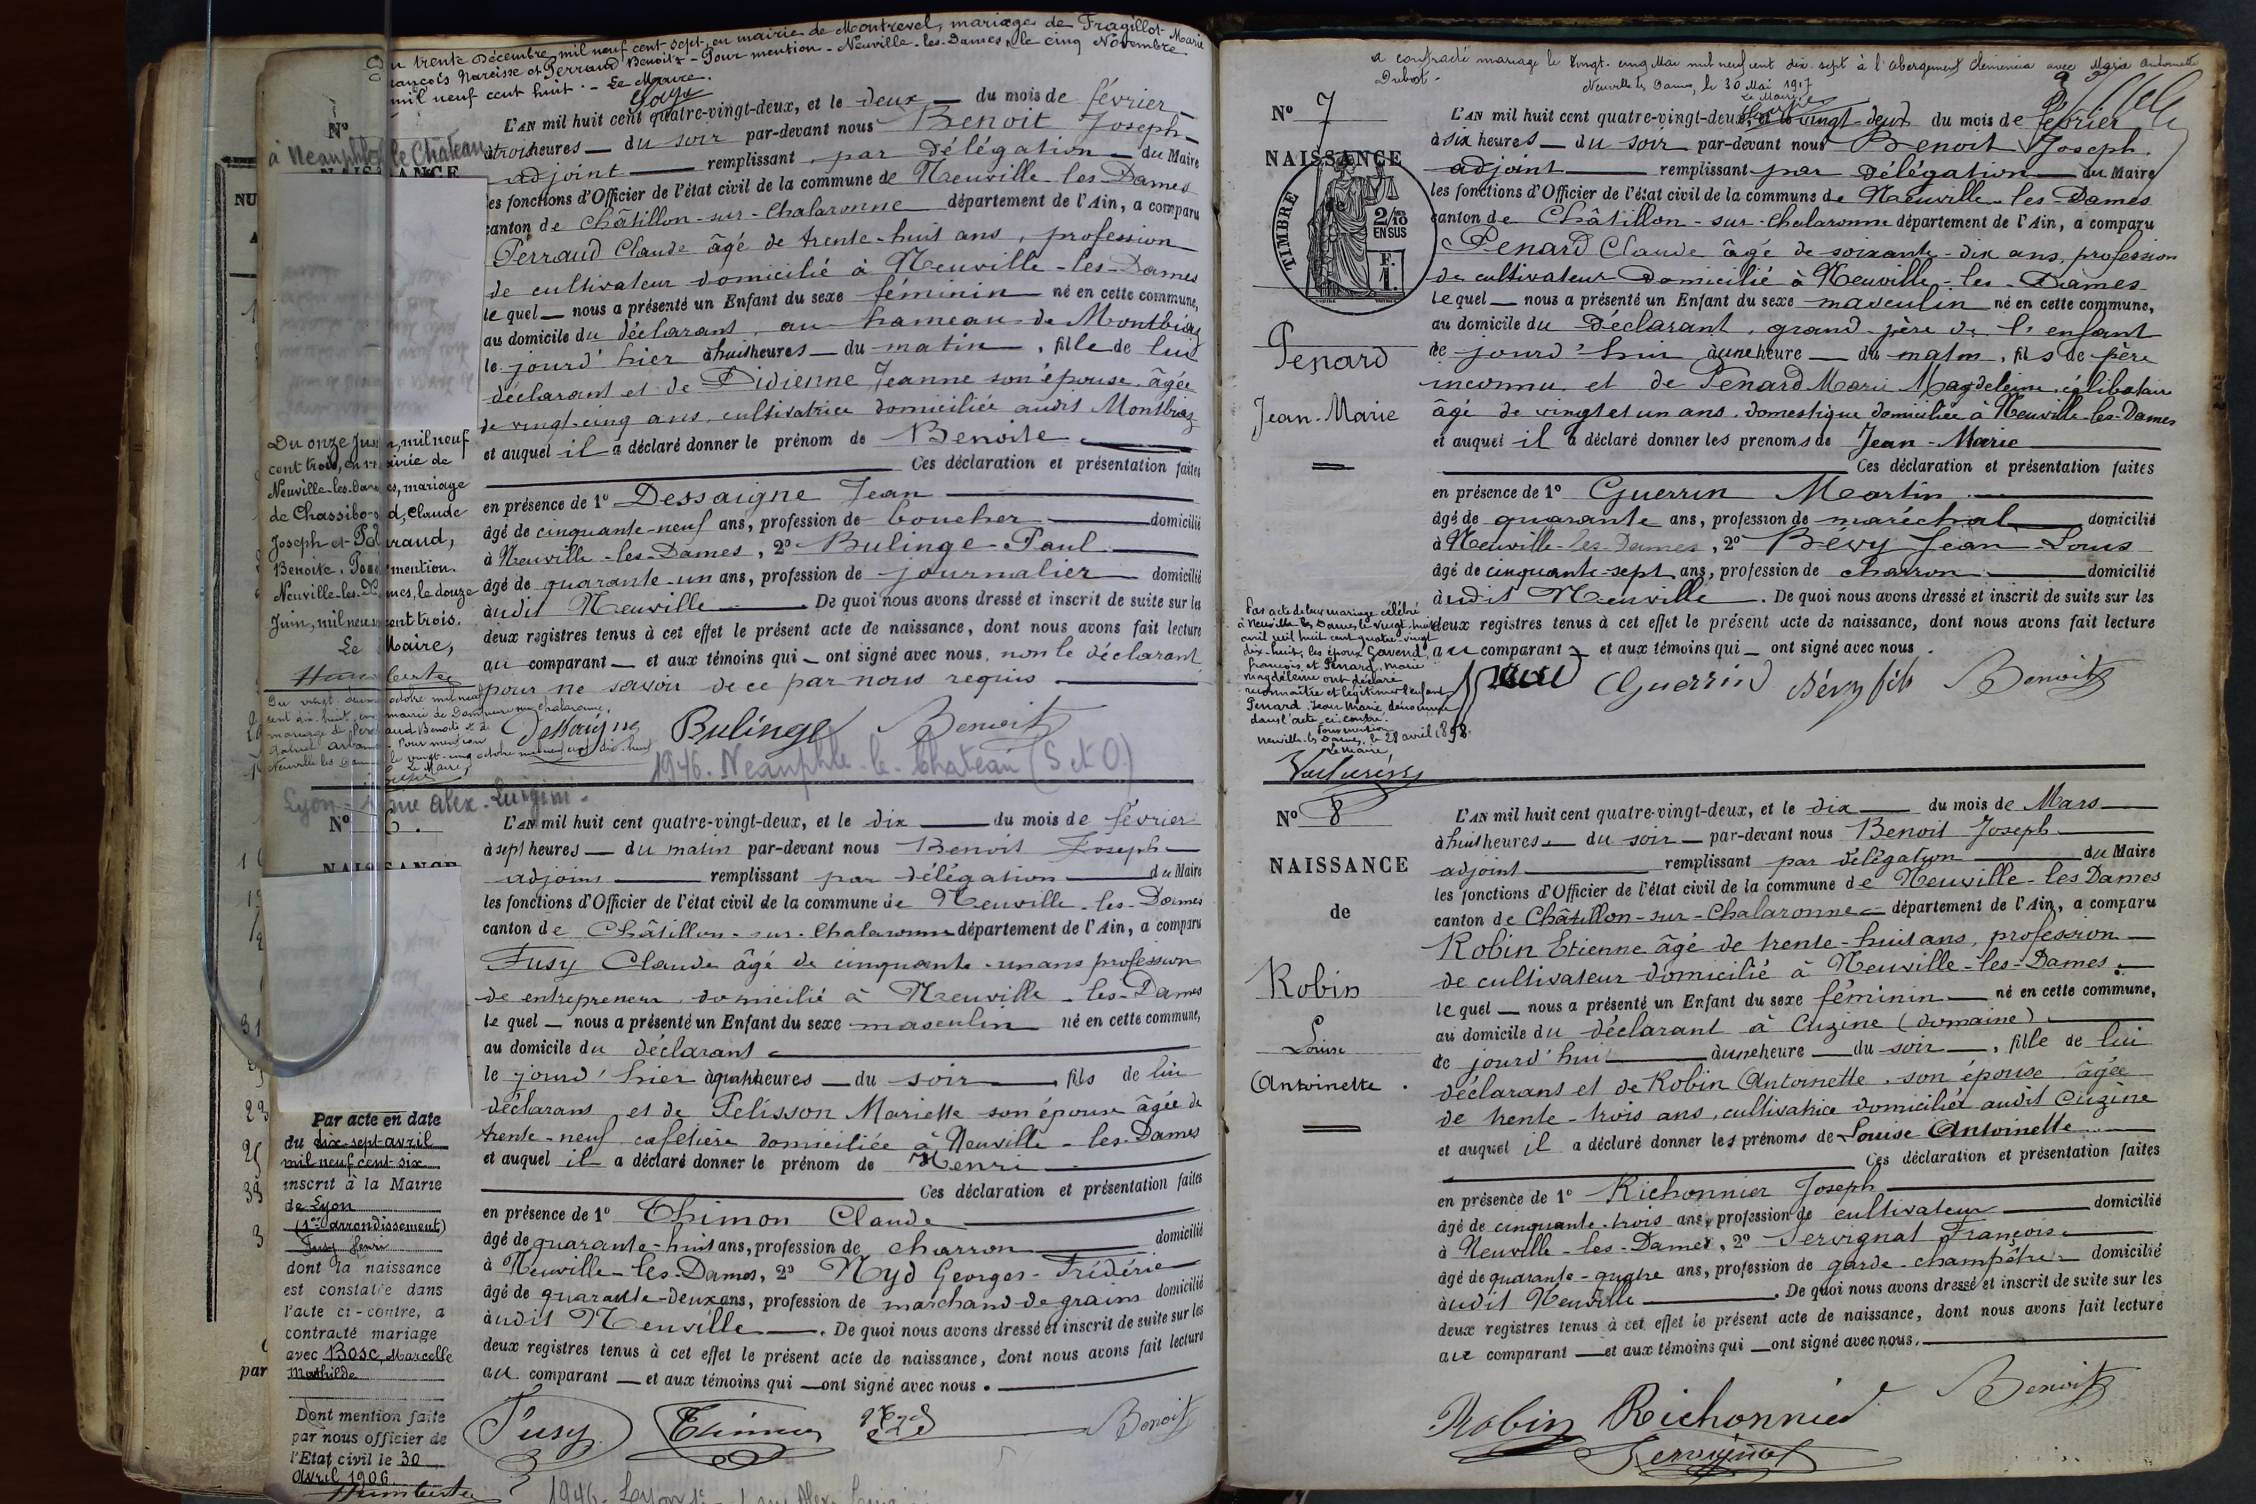 Du trente Décembre mil neuf cent sept, en mairie de Montrevel, mariage de Fragillot Marie
François Narcisse et Perraud Benoite - Pour mention - Neuville-les-Dames, le cinq Novembre
mil neuf cent huit. - Le Maire.
N°
à Neauphle le Château
NAISSANCE
L'AN mil huit cent quatre-vingt-deux, et le deux du mois de février
à trois heures du soir par-devant nous Benoit Joseph
adjoint remplissant par délégation du Maire
les fonctions d'Officier de l'état civil de la commune de Neuville-les-Dames
canton de Châtillon-sur-Chalaronne département de l'Ain, a comparu
Perraud Claude âgé de trente-huit ans, profession
de cultivateur domicilié à Neuville-les-Dames
lequel nous a présenté un Enfant du sexe féminin né en cette commune,
au domicile du déclarant, au hameau de Montbiaz
le jourd'hier à huit heures du matin, fille de lui
déclarant et de Didienne Jeanne son épouse âgée
de vingt-cinq ans, cultivatrice domiciliée audit Montbiaz
et auquel il a déclaré donner le prénom de Benoite
Ces déclaration et présentation faites
en présence de 1° Dessaigne Jean
âgé de cinquante-neuf ans, profession de boucher domicilié
à Neuville-les-Dames, 2° Bulinge Paul
âgé de quarante-un ans, profession de journalier domicilié
audit Neuville. De quoi nous avons dressé et inscrit de suite sur les
deux registres tenus à cet effet le présent acte de naissance, dont nous avons fait lecture
au comparant et aux témoins qui ont signé avec nous, non le déclarant
pour ne savoir de ce par nous requis
Dessaigne Bulinge Benoit
1946. Neauphle-le-Château (S et O.)
Du onze Juin, mil neuf
cent trois, en mairie de
Neuville-les-Dames, mariage
de Chassibo-d, Claude
Joseph et Perraud,
Benoite. Pour mention.
Neuville-les-Dames, le douze
Juin, mil neuf cent trois.
Le Maire,
Humberte
Lyon - 1 rue Alex. Luigini.
N° 6.
NAISSANCE
L'AN mil huit cent quatre-vingt-deux, et le dix du mois de février
à sept heures du matin par-devant nous Benoit Joseph
adjoint remplissant par délégation du Maire
les fonctions d'Officier de l'état civil de la commune de Neuville-les-Dames
canton de Châtillon-sur-Chalaronne département de l'Ain, a comparu
Fusy Claude âgé de cinquante-un ans profession
de entrepreneur domicilié à Neuville-les-Dames
lequel nous a présenté un Enfant du sexe masculin né en cette commune,
au domicile du déclarant
le jourd'hier à quatre heures du soir fils de lui
déclarant et de Pelisson Mariette son épouse âgée de
trente-neuf cafetière domiciliée à Neuville-les-Dames
et auquel il a déclaré donner le prénom de Henri
Ces déclaration et présentation faites
en présence de 1° Thimon Claude
âgé de quarante-huit ans, profession de charron domicilié
à Neuville-les-Dames, 2° Nyd Georges-Frédéric
âgé de quarante-deux ans, profession de marchand de grains domicilié
audit Neuville. De quoi nous avons dressé et inscrit de suite sur les
deux registres tenus à cet effet le présent acte de naissance, dont nous avons fait lecture
au comparant et aux témoins qui ont signé avec nous.
Fusy Thimon Nyd Benoit
Par acte en date
du dix-sept avril
mil neuf cent six
inscrit à la Mairie
de Lyon
(1er arrondissement)
Fusy Henri
dont la naissance
est constatée dans
l'acte ci-contre, a
contracté mariage
avec Bosc, Marcelle
Mathilde
Dont mention faite
par nous officier de
l'Etat civil le 30
Avril 1906.
a contracté mariage le vingt-cinq Mai mil neuf cent dix-sept à l'Abergement Clémencia avec Marie Antoinette
Dubost.
Neuville les Dames, le 30 Mai 1917
Le Maire
N° 7
NAISSANCE
TIMBRE
2/10
EN SUS
F.
1.
Penard
Jean-Marie
L'AN mil huit cent quatre-vingt-deux, et le vingt-deux du mois de février
à six heures du soir par-devant nous Benoit Joseph
adjoint remplissant par délégation du Maire
les fonctions d'Officier de l'état civil de la commune de Neuville-les-Dames
canton de Châtillon-sur-Chalaronne département de l'Ain, a comparu
Penard Claude âgé de soixante-dix ans, profession
de cultivateur domicilié à Neuville-les-Dames
lequel nous a présenté un Enfant du sexe masculin né en cette commune,
au domicile du déclarant, grand-père de l'enfant
ce jourd'hui à une heure du matin, fils de père
inconnu et de Penard Marie Magdeleine, célibataire
âgé de vingt et un ans, domestique domiciliée à Neuville-les-Dames
et auquel il a déclaré donner les prenoms de Jean-Marie
Ces déclaration et présentation faites
en présence de 1° Guerrin Martin
âgé de quarante ans, profession de maréchal domicilié
à Neuville-les-Dames, 2° Bévy Jean-Louis
âgé de cinquante-sept ans, profession de charron domicilié
audit Neuville. De quoi nous avons dressé et inscrit de suite sur les
deux registres tenus à cet effet le présent acte de naissance, dont nous avons fait lecture
au comparant et aux témoins qui ont signé avec nous.
Guerrin Bévy fils Benoit
Par acte de leur mariage célébré
à Neuville les Dames le vingt-huit
avril mil huit cent quatre-vingt
dix-huit, les époux Gavend,
françois et Penard, marie
magdeleine ont déclaré
reconnaître et légitimer l'enfant
Penard Jean Marie dénommé
dans l'acte ci-contre.
Pour mention
Neuville-les-Dames, le 28 avril 1898.
Le Maire,
N° 8
NAISSANCE
de
Robin
Louise
Antoinette.
L'AN mil huit cent quatre-vingt-deux, et le dix du mois de Mars
à huit heures du soir par-devant nous Benoit Joseph
adjoint remplissant par délégation du Maire
les fonctions d'Officier de l'état civil de la commune de Neuville-les Dames
canton de Châtillon-sur-Chalaronne département de l'Ain, a comparu
Robin Etienne âgé de trente-huit ans, profession
de cultivateur domicilié à Neuville-les-Dames
lequel nous a présenté un Enfant du sexe féminin né en cette commune,
au domicile du déclarant à Cuzine (domaine)
ce jourd'hui à une heure du soir, fille de lui
déclarant et de Robin Antoinette, son épouse, âgée
de trente-trois ans, cultivatrice domiciliée audit Cuzine
et auquel il a déclaré donner les prénoms de Louise Antoinette
Ces déclaration et présentation faites
en présence de 1° Richonnier Joseph
âgé de cinquante-trois ans, profession de cultivateur domicilié
à Neuville-les-Dames, 2° Servignat François
âgé de quarante-quatre ans, profession de garde-champêtre domicilié
audit Neuville. De quoi nous avons dressé et inscrit de suite sur les
deux registres tenus à cet effet le présent acte de naissance, dont nous avons fait lecture
au comparant et aux témoins qui ont signé avec nous.
Robin Richonnier Benoit
Servignat